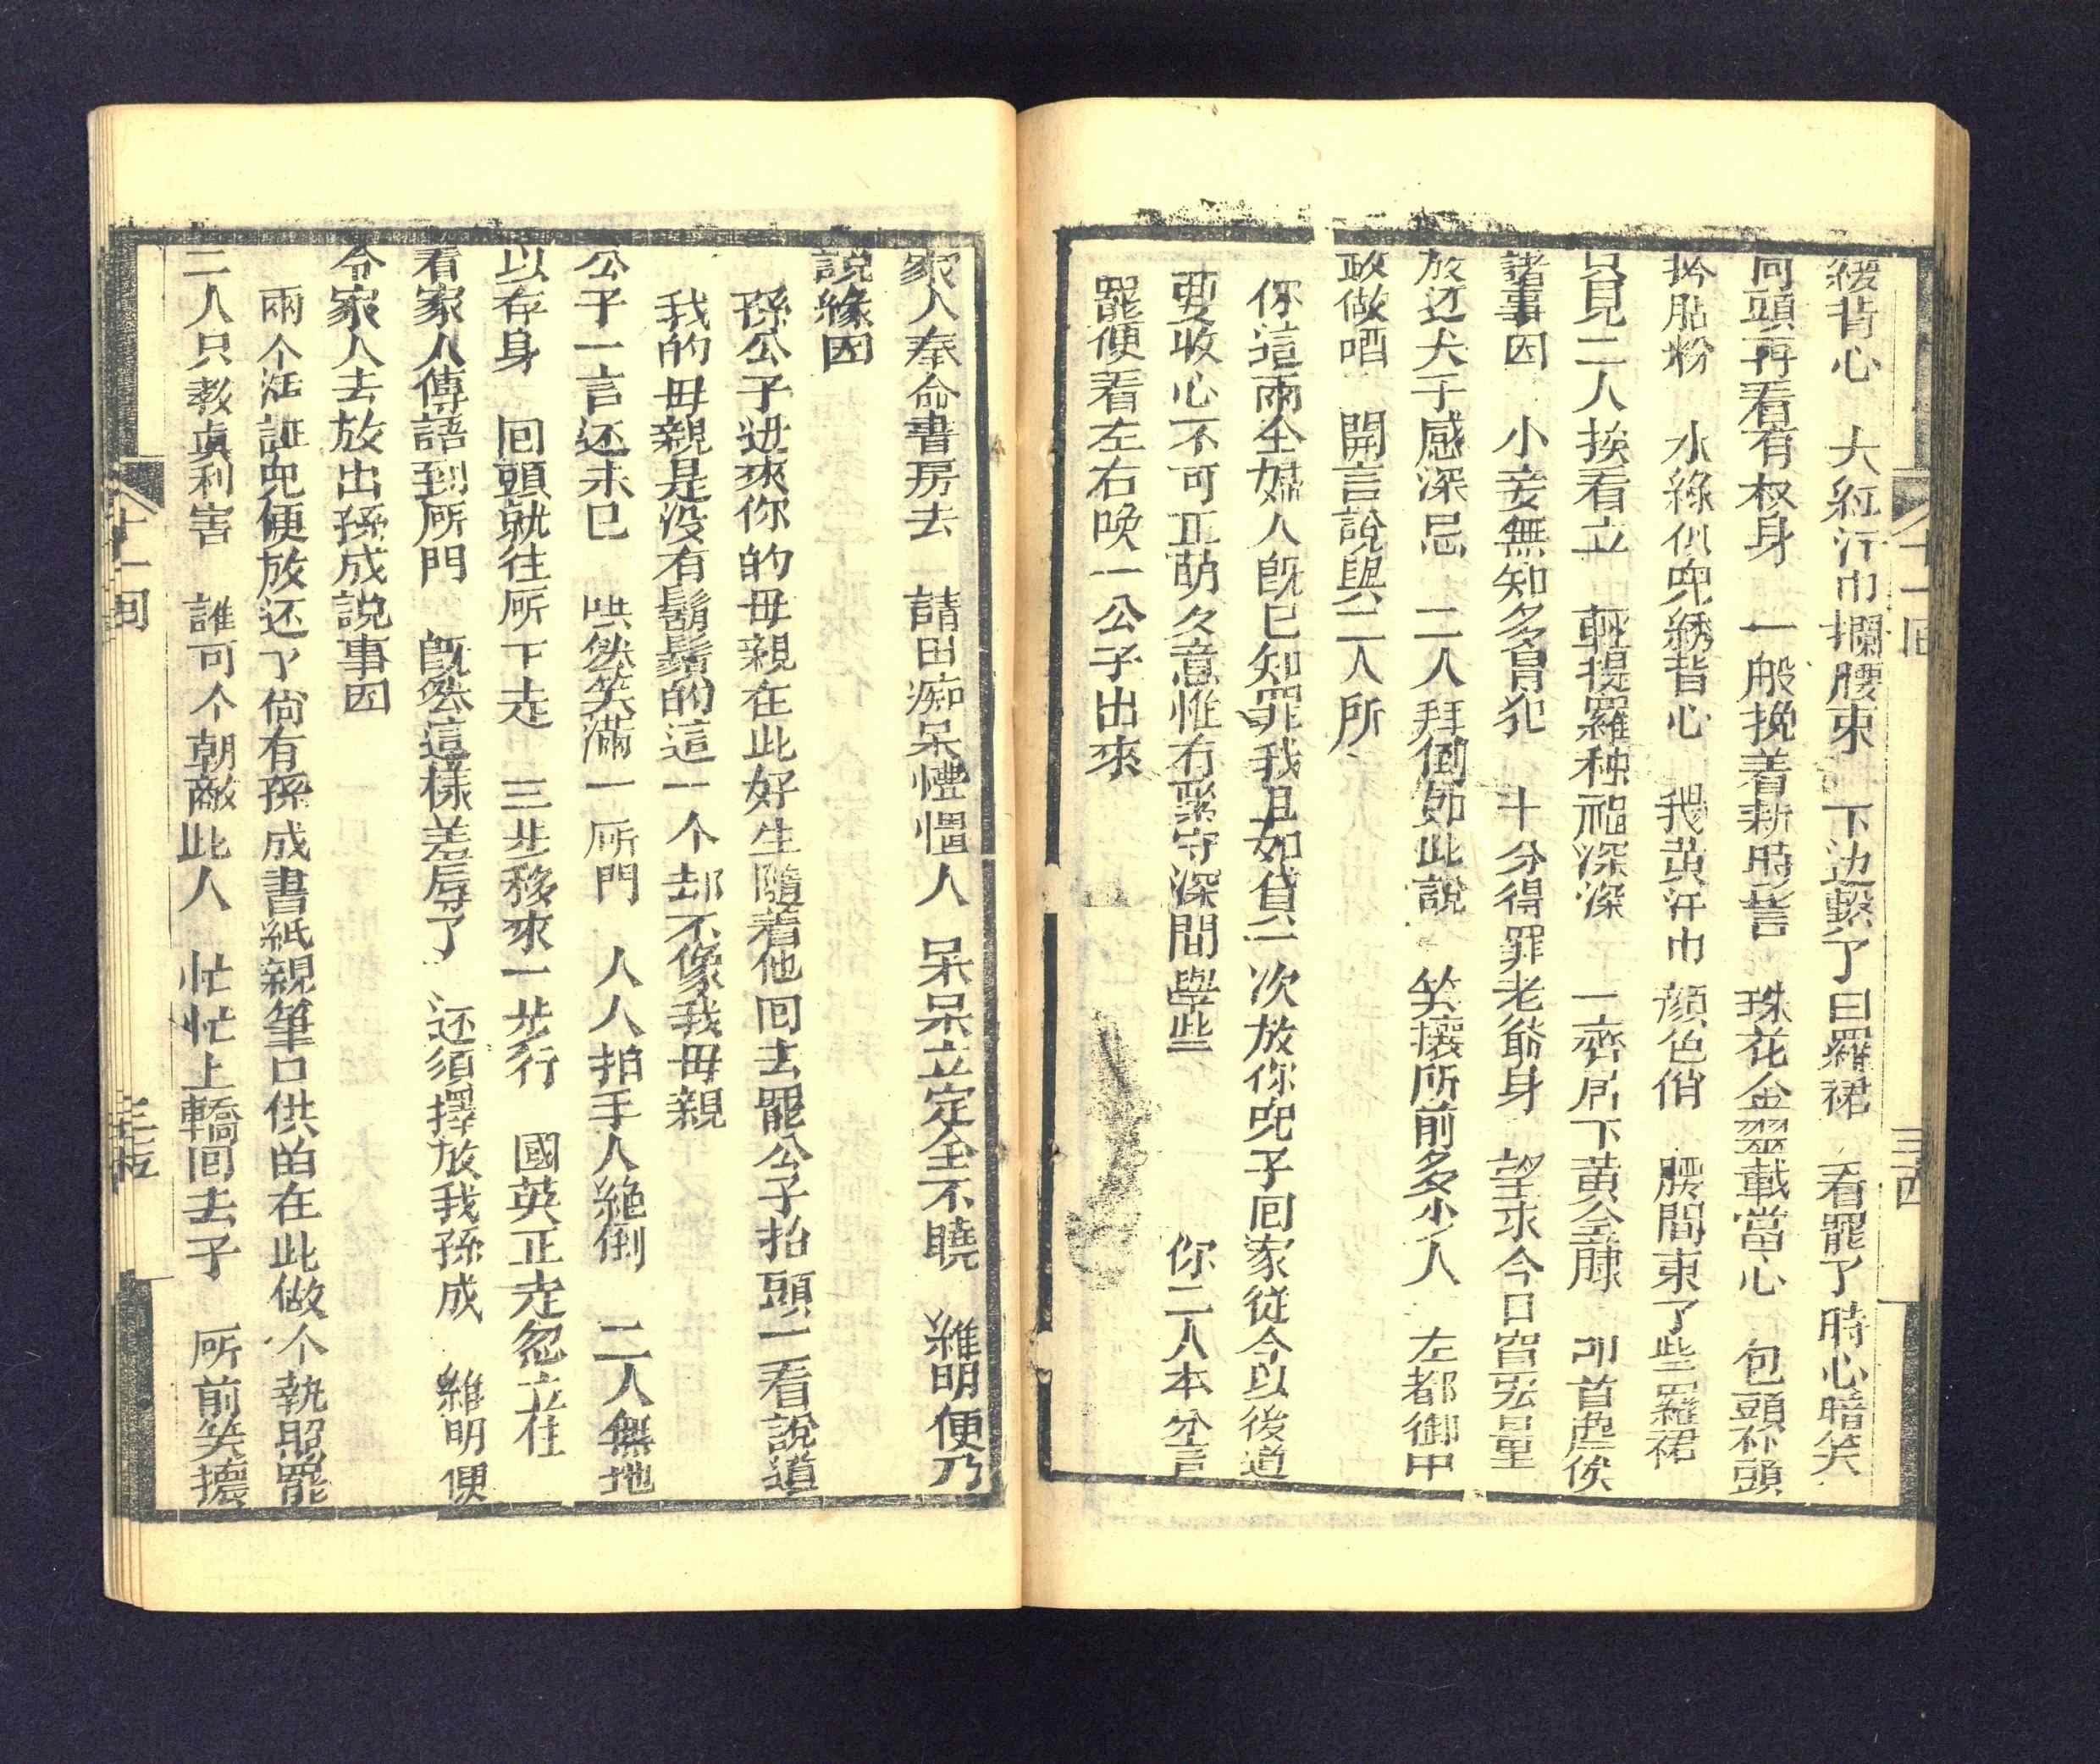 緩背心　大紅汗巾攔腰束　下边繫了曰羅裙　看罷了時心暗笑
回頭再看有权身　一般挽着新時髻　珠花金翠載當心　包頭ाठ頭
搽胭粉　水綠　兜綉背心　我黄汗巾　顔色俏　腰間束了些羅裙
只見二人挨看立　輕提羅袖福深深　一齊居下黄金膝　叩首
諸事因　小妾無知多冒犯　十分得罪老爺身　望求今日寬宏量
放过犬子感深恩　二人拜倒如此說　笑壞所前多少人　左都御史
政做哂　開言說與二人所
你這兩个婦人既已知罪我且如貸一次放你兜子回家従今以後道
要收心不可正萌久意惟有緊守深閨學些　　你二人本分言
罷便看左右喚一公子出來
十一回
三四
家人奉命書房去　請出痴呆懞憧人　呆呆立定全不曉　維明便乃
說緣因
孫公子过來你的毋親在此好生隨着他囘去罷公子抬頭一看說道
我的毋親是没有鬍鬚的這一个却不像我毋親
公子一言还未已　哄然笑滿一所門　人人拍手人絶倒　二人無地
以存身　囘頭就往所下走　三步移來一步行　國英正走忽立住
看家人傳語到所門　既然這樣羞辱了　还須擇放我孫成　維明便
令家人去放出孫成說事因
兩个活証兜便放还了尚有孫成書紙親筆口供的在此做个執照罷
二人只教真利害　誰可个朝敵此人　忙忙上轎囘去子　所前笑壞
十一回
三五